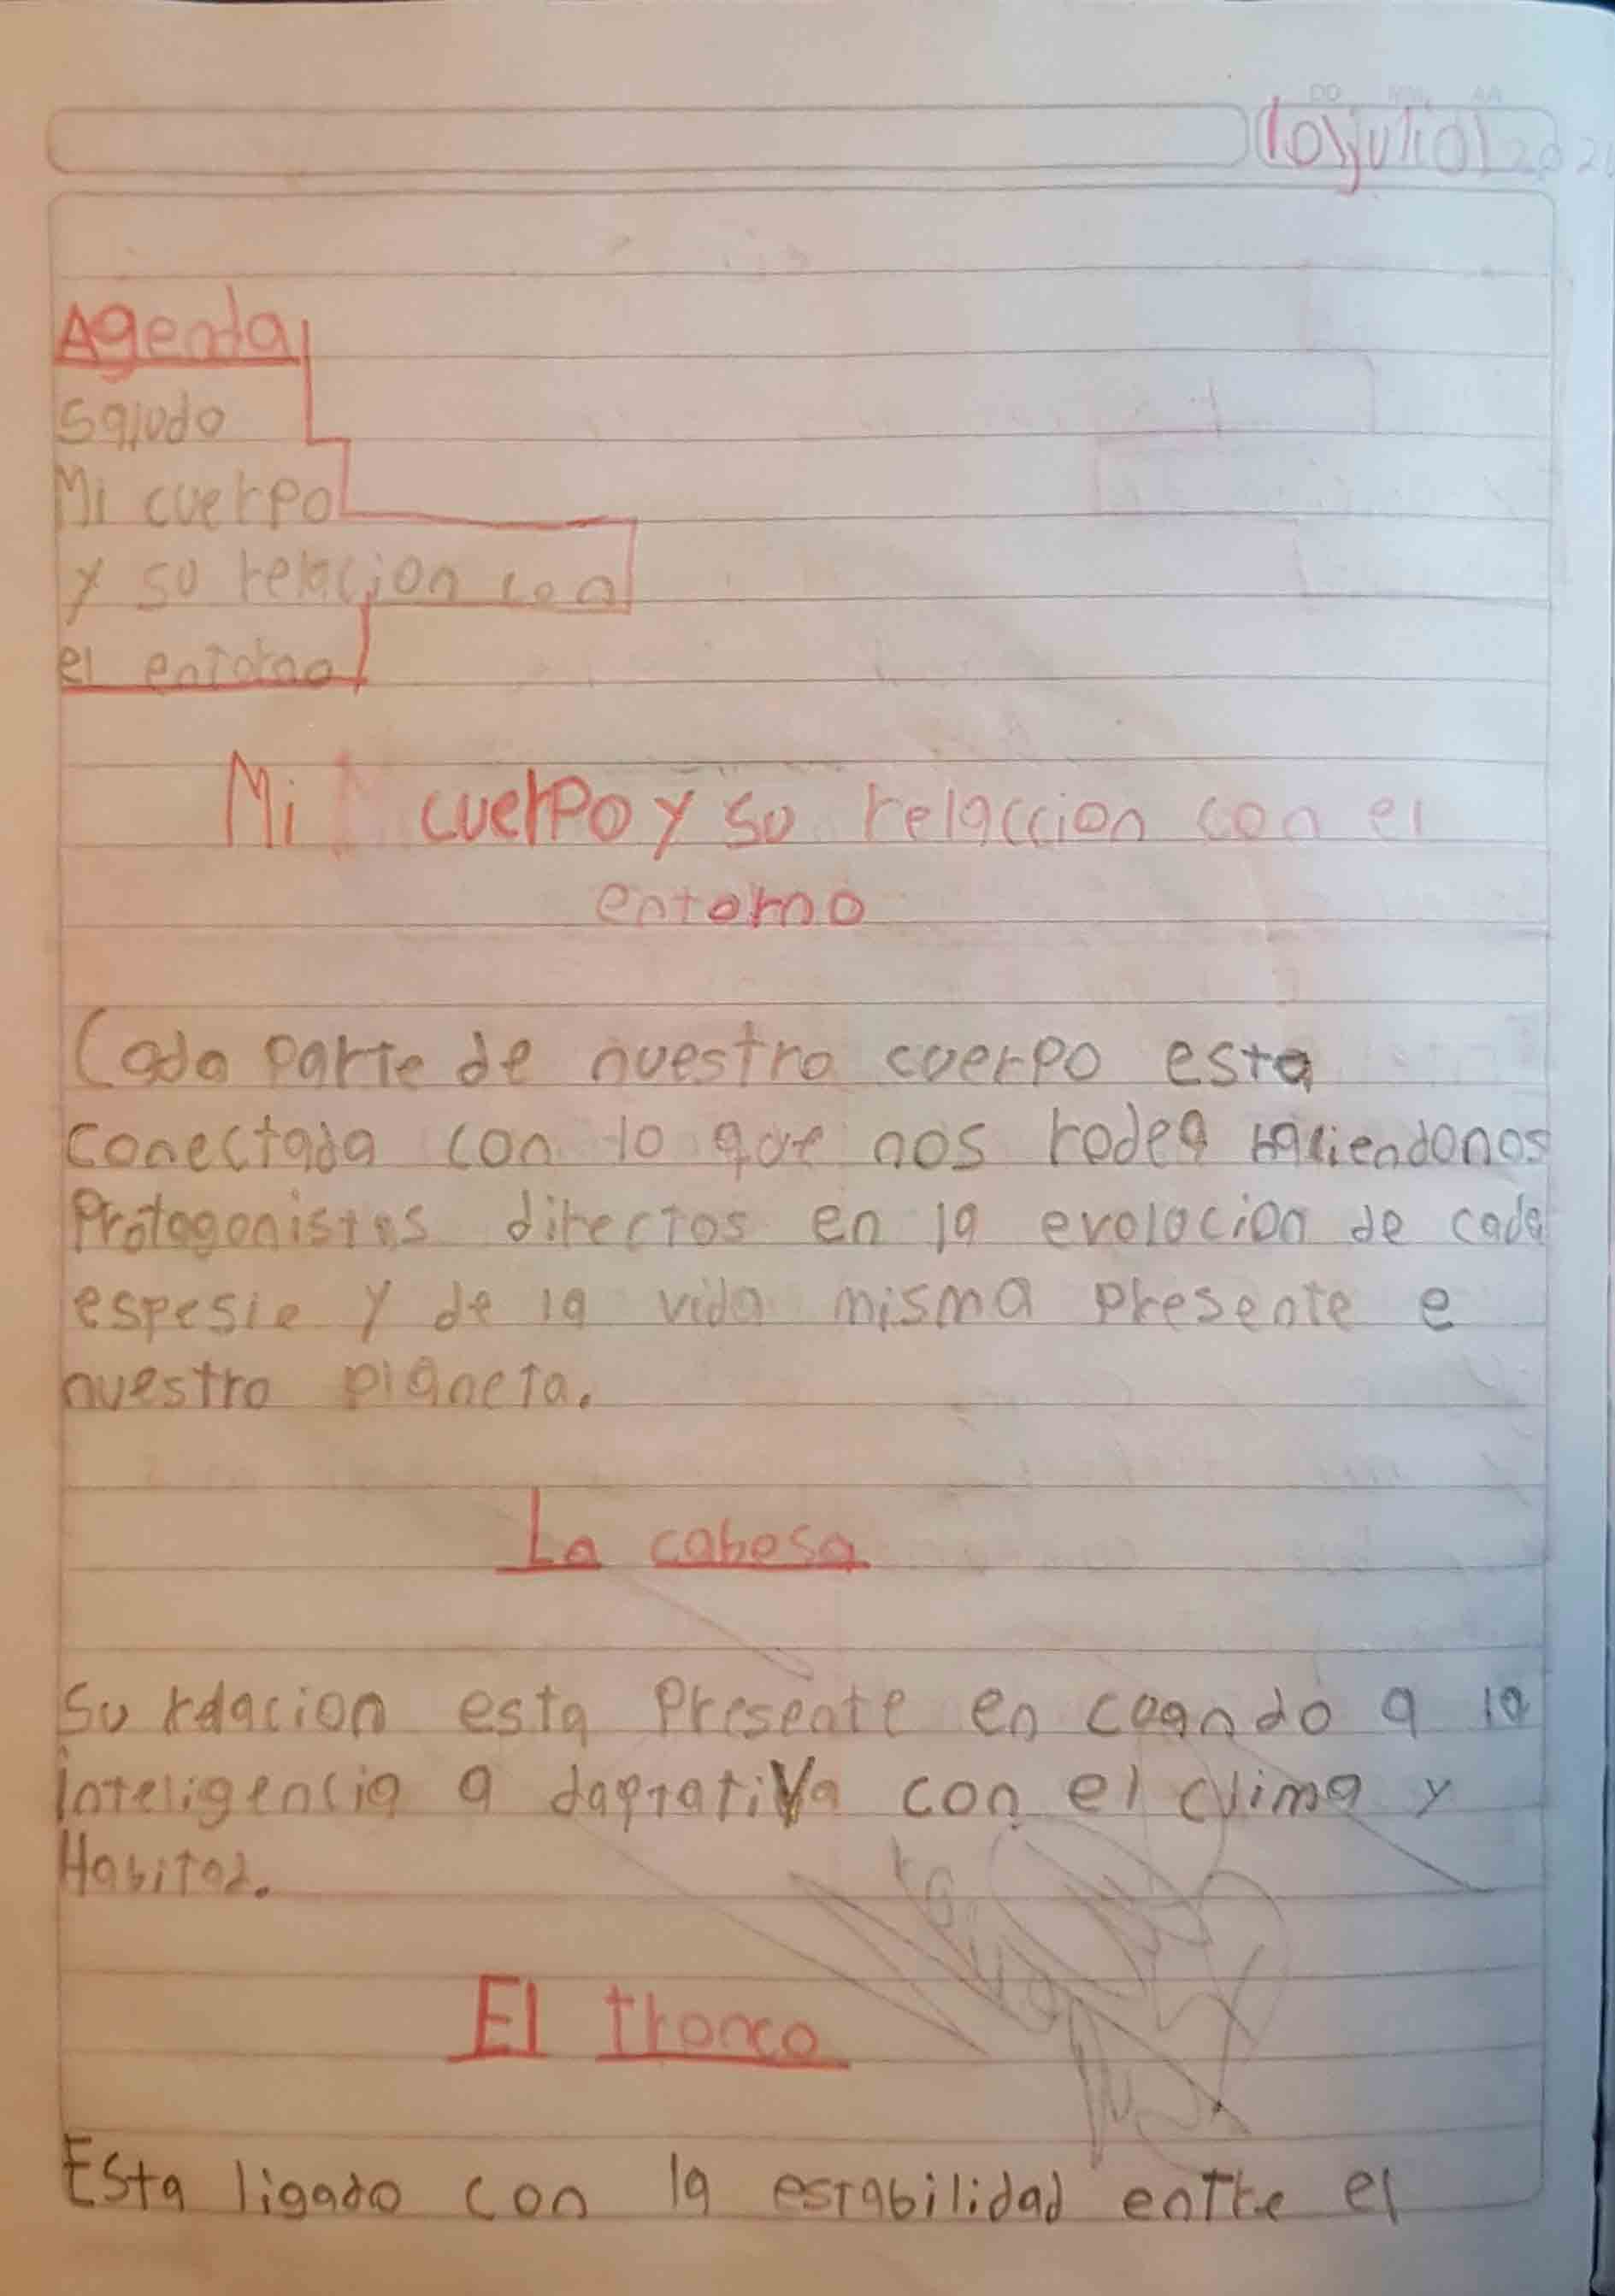 DD MM AA
10 julio 202
Agenda
Saludo
Mi cuerpo
y su relacion con
el entorno
Mi cuerpo y su relaccion con el
entorno
Cada parte de nuestro cuerpo esta
conectada con lo que nos rodea haciendonos
Protagonistas directos en la evolucion de cada
espesie y de la vida misma presente e
nuestro planeta.
La cabesa
Su relacion esta Presente en cuando a la
inteligencia a daptativa con el clima y
Habitad.
El tronco
Esta ligado con la estabilidad entre el